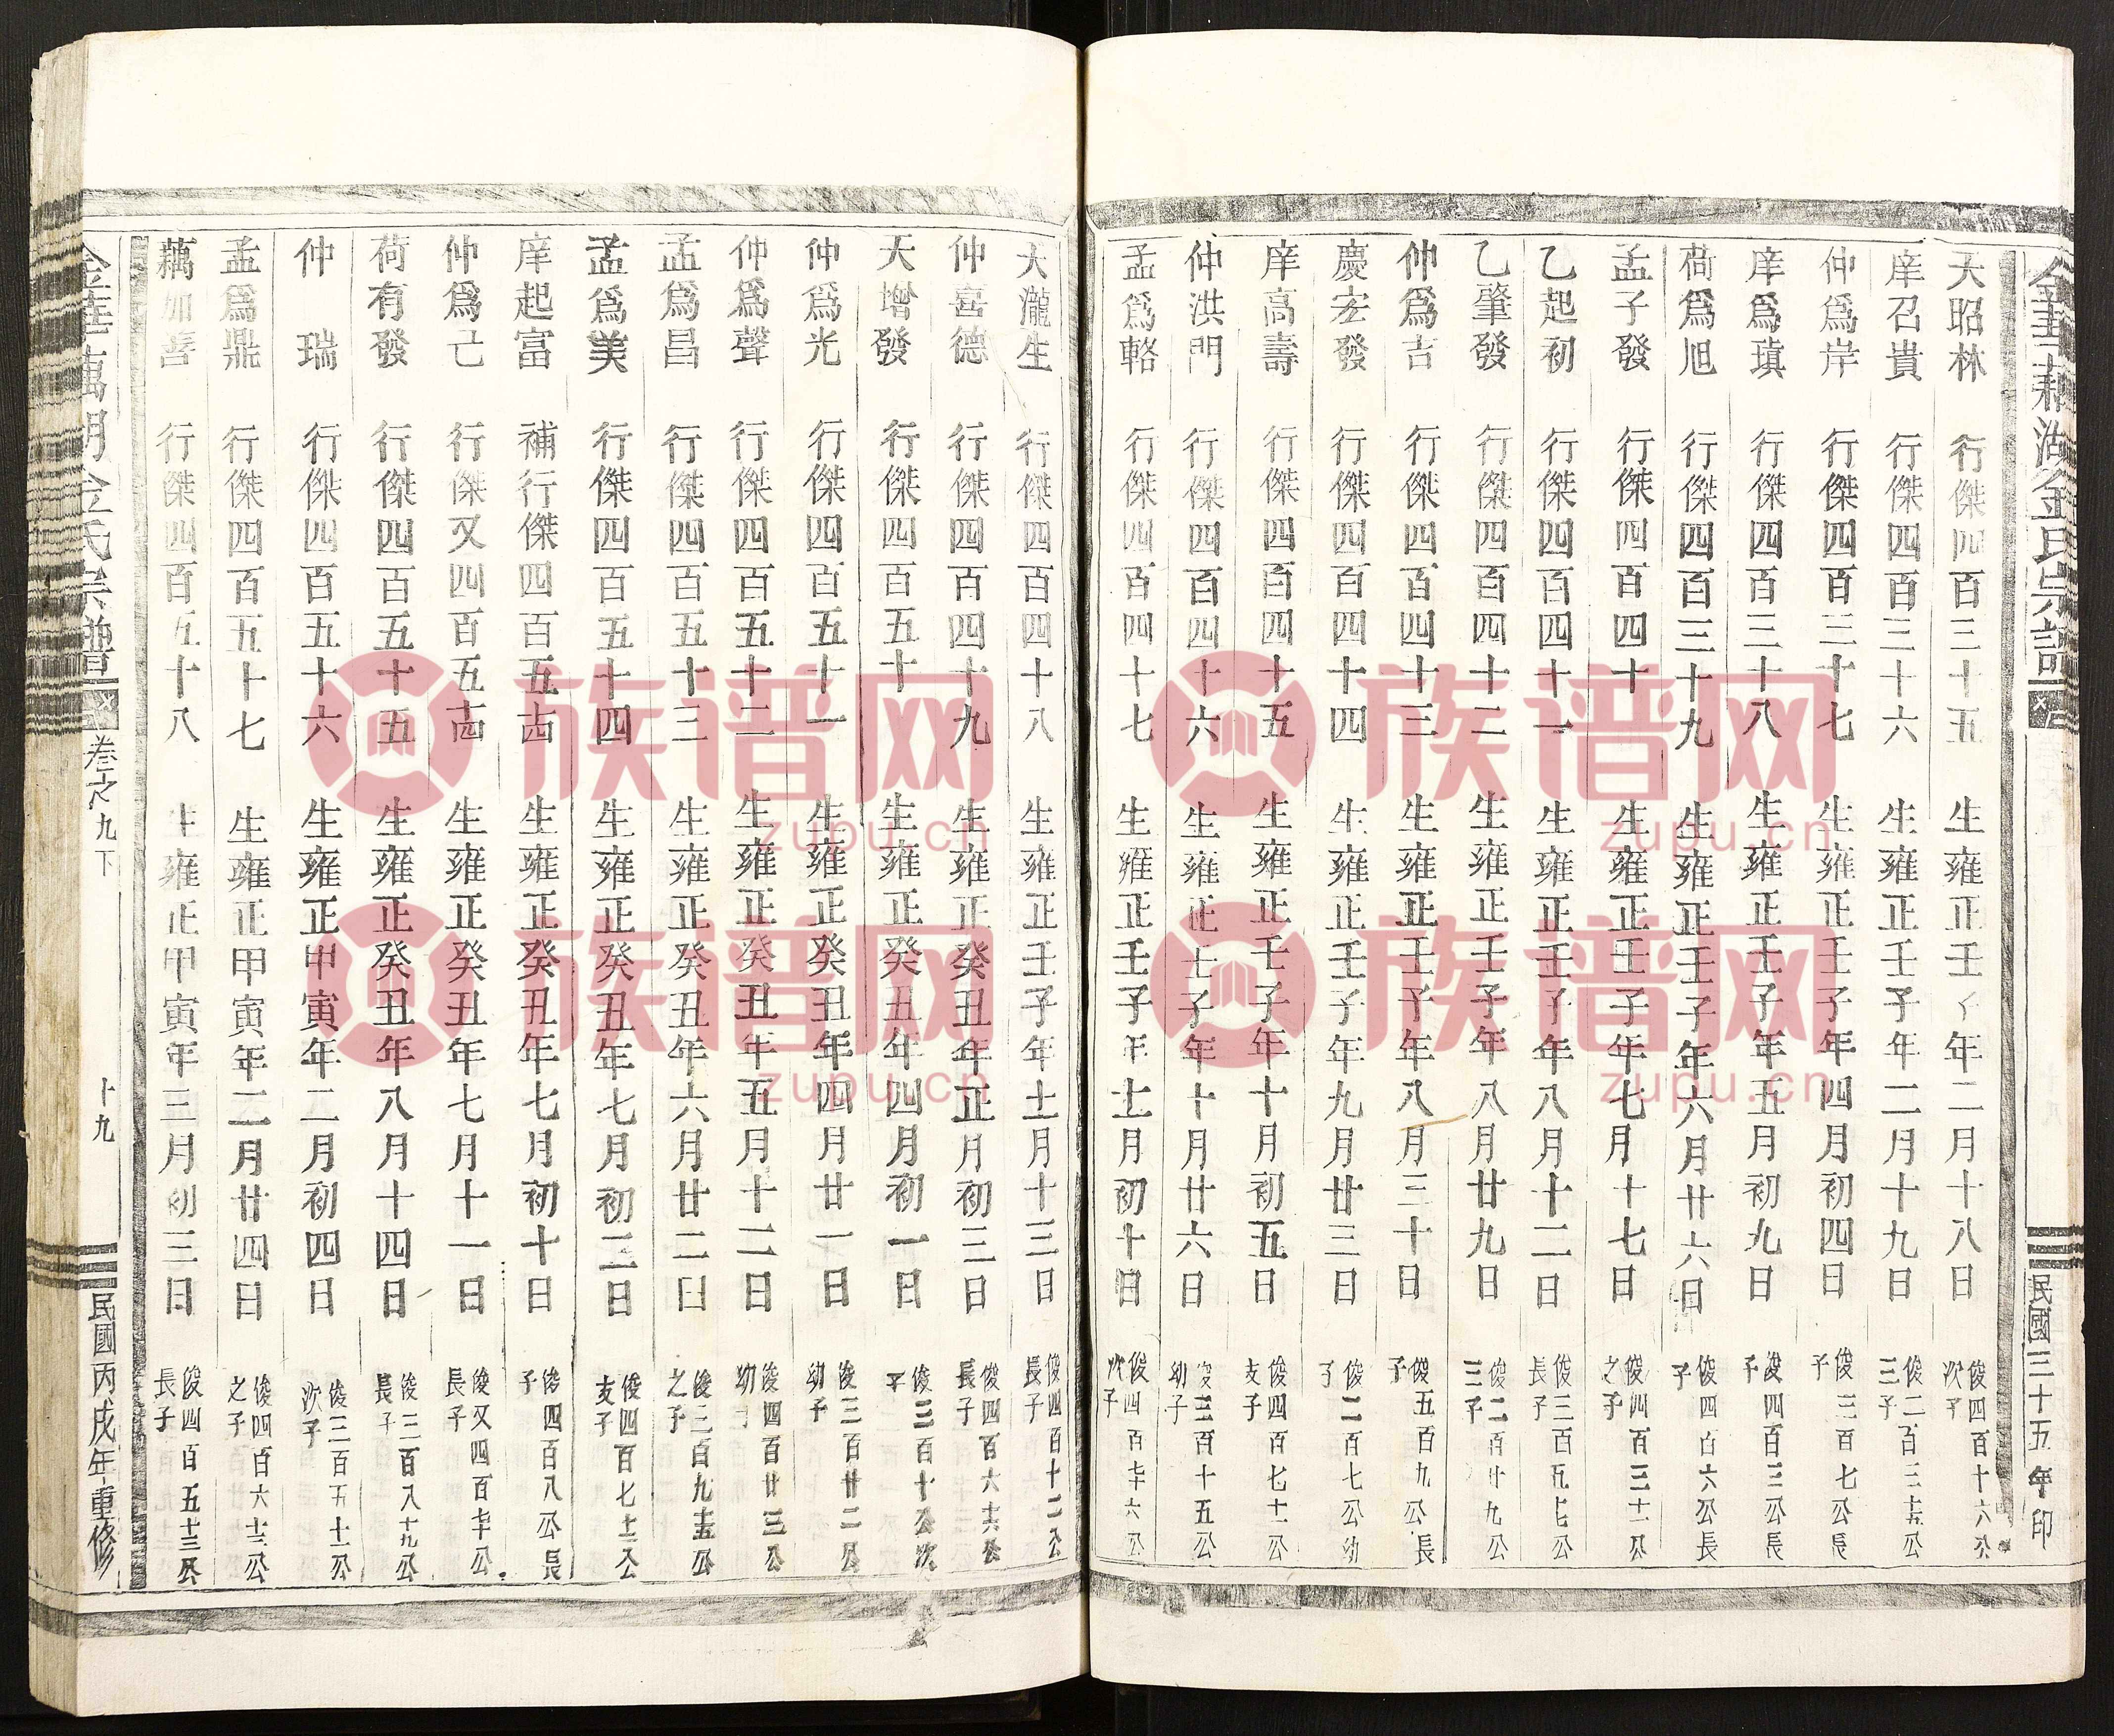 金華蕅湖金氏宗譜
民國三十五年印
天昭林 行傑四百三十五 生雍正壬子年二月十八日 俊四百十六公次子
庠召貴 行傑四百三十六 生雍正壬子年二月十九日 俊二百三十五公三子
仲爲岸 行傑四百三十七 生雍正壬子年四月初四日 俊三百七公長子
庠爲瑱 行傑四百三十八 生雍正壬子年五月初九日 俊四百三公長子
荷爲旭 行傑四百三十九 生雍正壬子年六月廿六日 俊四百六公長子
孟子發 行傑四百四十 生雍正壬子年七月十七日 俊四百三十一公之子
乙起初 行傑四百四十一 生雍正壬子年八月十二日 俊三百五十七公長子
乙肇發 行傑四百四十二 生雍正壬子年八月廿九日 俊二百廿九公三子
仲爲吉 行傑四百四十三 生雍正壬子年八月三十日 俊五百九公長子
慶宏發 行傑四百四十四 生雍正壬子年九月廿三日 俊二百七公幼子
庠高壽 行傑四百四十五 生雍正壬子年十月初五日 俊四百七十一公支子
仲洪門 行傑四百四十六 生雍正壬子年十月廿六日 俊三百十五公幼子
孟爲輅 行傑四百四十七 生雍正壬子年十一月初十日 俊四百七十六公次子
大瀧生 行傑四百四十八 生雍正壬子年十一月十三日 俊四百十二公長子
仲喜德 行傑四百四十九 生雍正癸丑年正月初三日 俊四百六十六公長子
天增發 行傑四百五十 生雍正癸丑年四月初一日 俊三百十公次子
仲爲光 行傑四百五十一 生雍正癸丑年四月廿一日 俊三百廿二公幼子
仲爲聲 行傑四百五十二 生雍正癸丑年五月十二日 俊四百廿三公幼子
孟爲昌 行傑四百五十三 生雍正癸丑年六月廿二日 俊三百九十五公之子
孟爲美 行傑四百五十四 生雍正癸丑年七月初三日 俊四百七十三公支子
庠起富 補行傑四百五十四 生雍正癸丑年七月初十日 俊四百八公長子
仲爲己 行傑又四百五十四 生雍正癸丑年七月十一日 俊又四百七十公長子
荷有發 行傑四百五十五 生雍正癸丑年八月十四日 俊三百八十九公長子
仲瑞 行傑四百五十六 生雍正甲寅年二月初四日 俊三百五十一公次子
孟爲鼎 行傑四百五十七 生雍正甲寅年二月廿四日 俊四百六十三公之子
蕅加善 行傑四百五十八 生雍正甲寅年三月初三日 俊四百五十三公長子
金華蕅湖金氏宗譜 卷之九下 十九 民國丙戌年重修
族谱网
zupu.cn
族谱网
zupu.cn
族谱网
zupu.cn
族谱网
zupu.cn